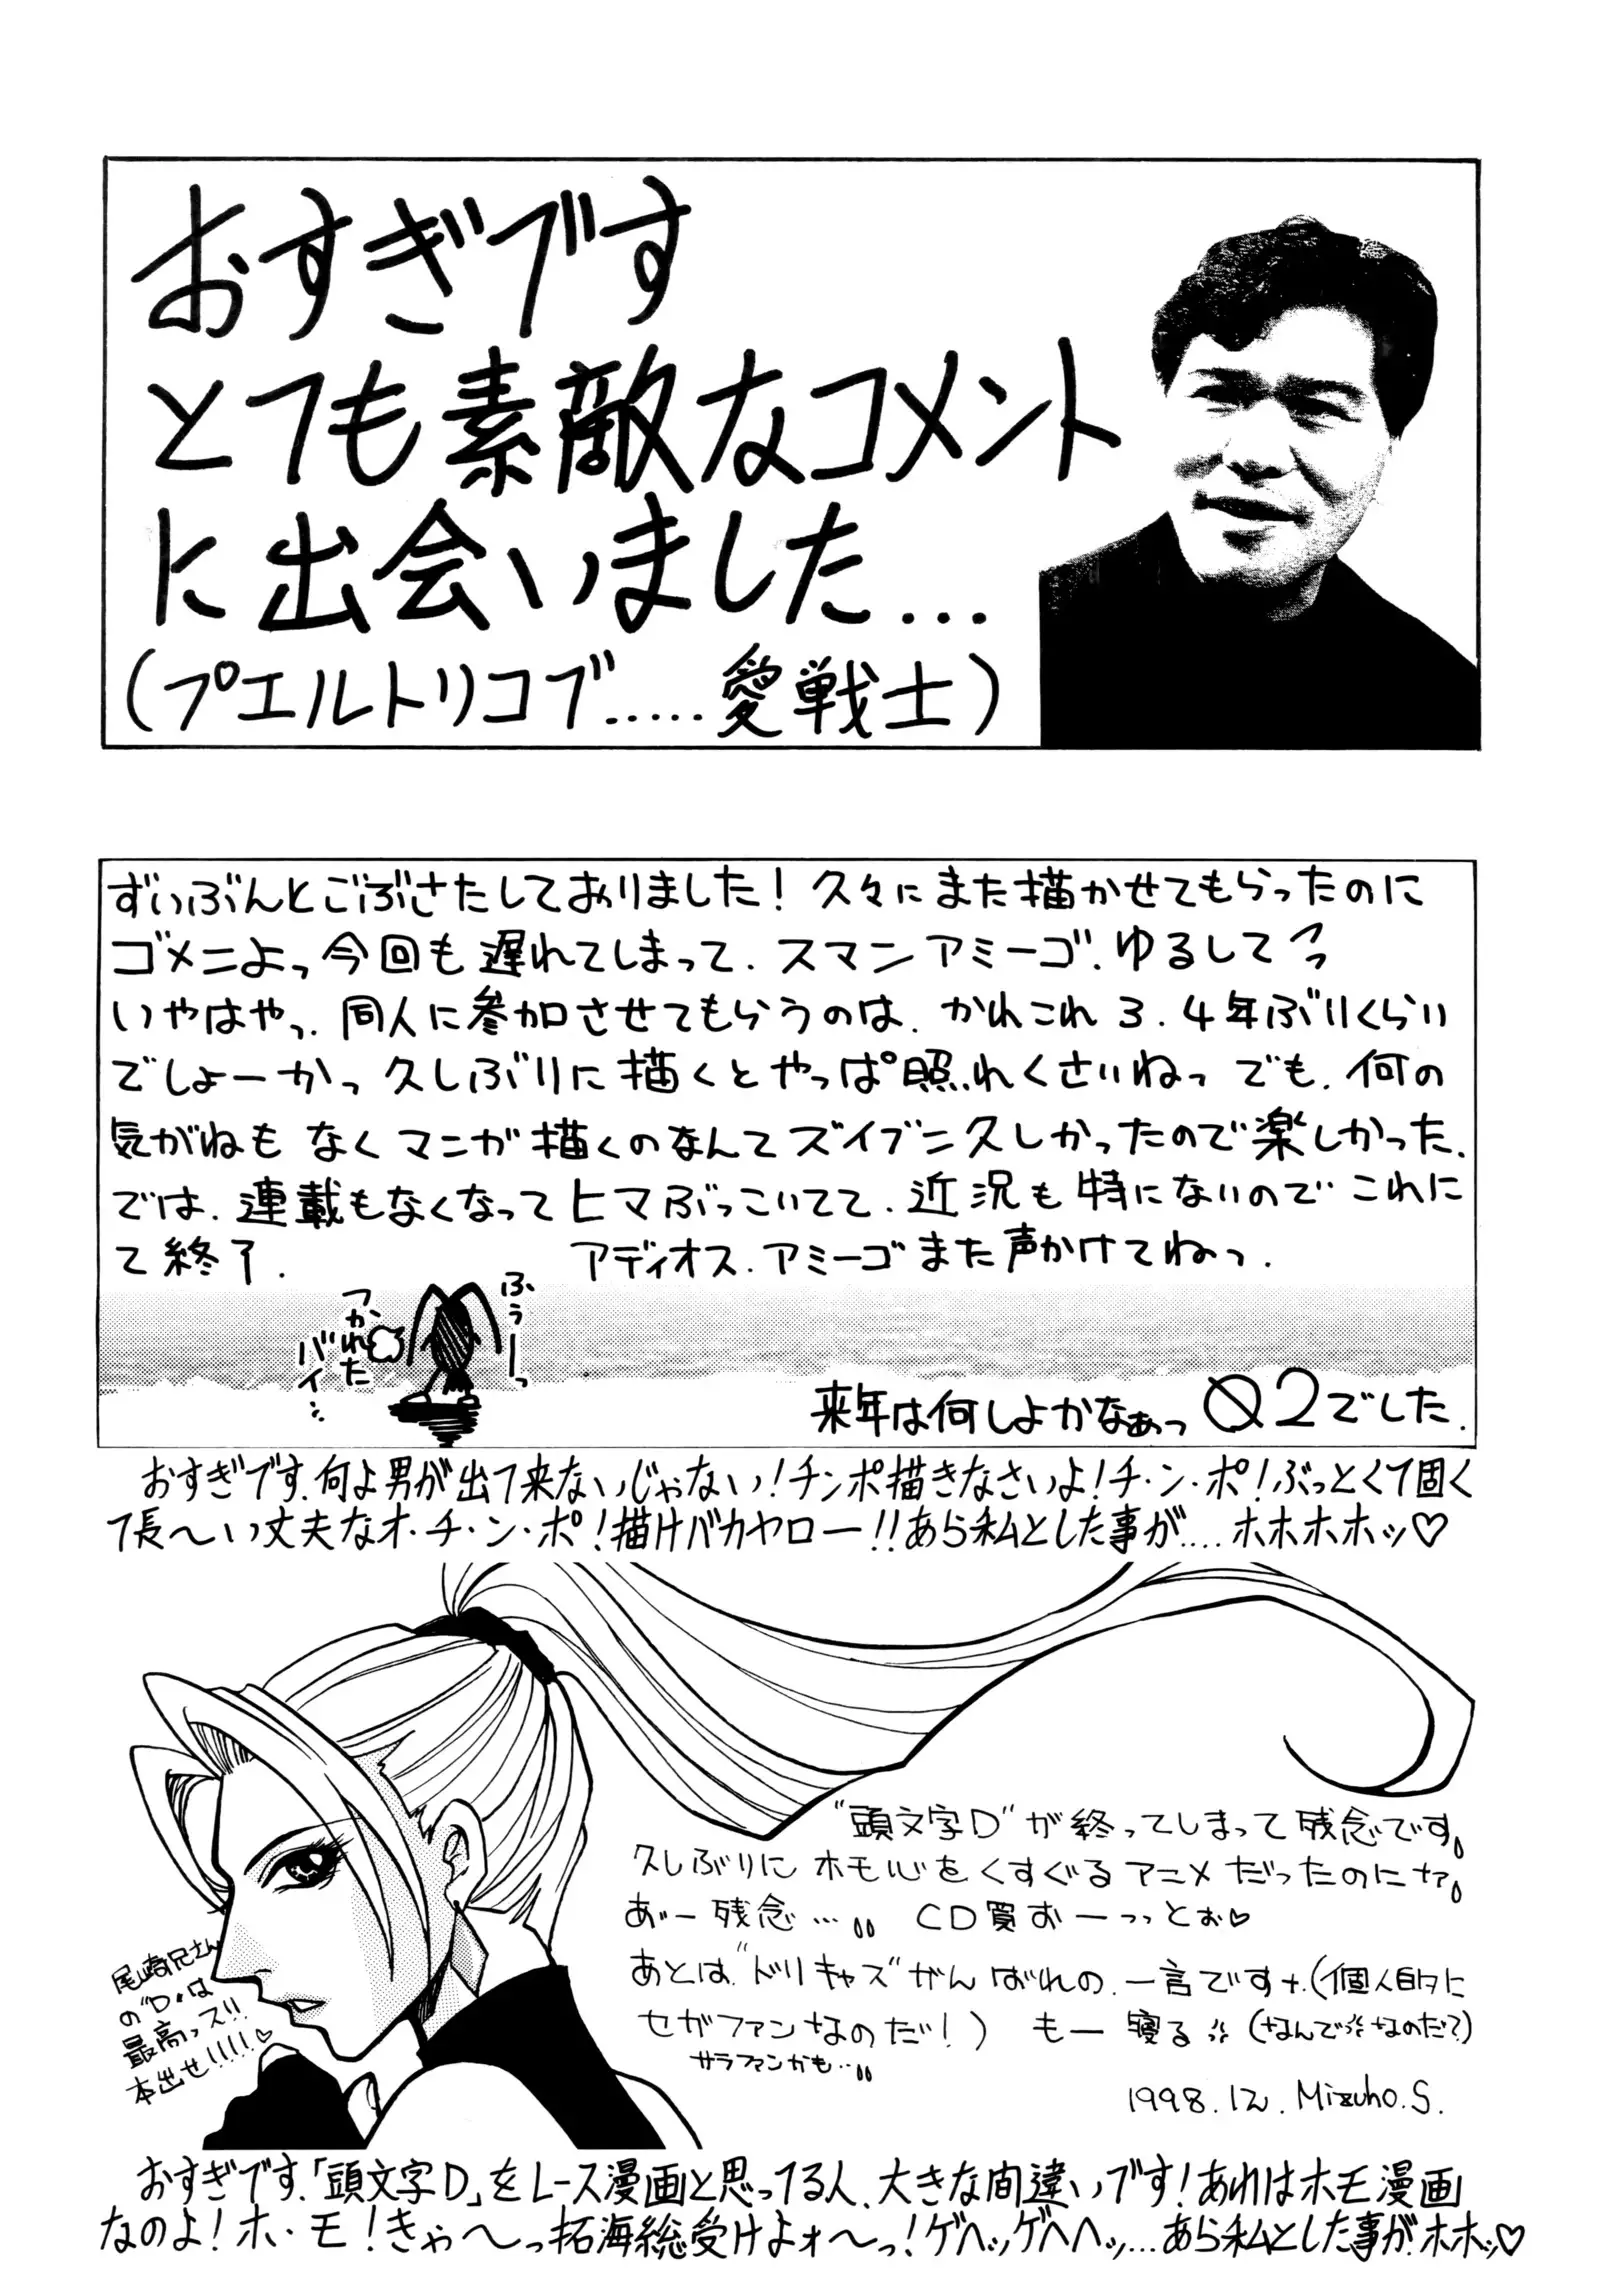 おすぎです
とても素敵なコメント
に出会いました...
(プエルトリコブ.....愛戦士)
ずいぶんとごぶさたしておりました!久々にまた描かせてもらったのに
ゴメニよっ今回も遅れてしまって.スマンアミーゴ.ゆるしてっ
いやはやっ.同人に参加させてもらうのは.かれこれ3.4年ぶりくらい
でしょーかっ久しぶりに描くとやっぱ照れくさいねっでも.何の
気がねもなくマニガ描くのなんてズイブニ久しかったので楽しかった.
では.連載もなくなってヒマぶっこいてて.近況も特にないのでこれに
て終了.
アディオス.アミーゴまた声かけてねっ.
ふぅーっ
つかれた
バイ
来年は何しよかなぁっ
02でした.
おすぎです.何よ男が出て来ないじゃない!チンポ描きなさいよ!チ・ン・ポ!ぶっとくて固く
て長〜い丈夫なオ・チ・ン・ポ!描けバカヤロー!!あら私とした事が....ホホホホッ♡
"頭文字D"が終ってしまって残念です。
久しぶりにホモ心をくすぐるアニメだったのにナァ。
あ゛ー残念…。CD買おーっっとぉ♡
あとは"ドリキャス"がんばれの.一言ですナ.(個人的に
セガファンなのだ!)もー寝る(なんでなのだ?)
サラファンかも…。
1998.12.Mizuho.S.
尾崎兄さん
の"D"は
最高っス!!
本出せ!!!!♡
おすぎです.「頭文字D」をレース漫画と思ってる人.大きな間違いです!あれはホモ漫画
なのよ!ホ・モ!きゃ〜っ拓海総受けよォ〜っ!ゲヘッゲヘヘッ...あら私とした事が.ホホッ♡